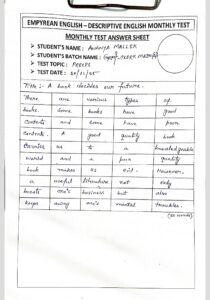 EMPYREAN ENGLISH – DESCRIPTIVE ENGLISH MONTHLY TEST
MONTHLY TEST ANSWER SHEET
➤ STUDENT'S NAME :
➤ STUDENT'S BATCH NAME :
➤ TEST TOPIC : PRECIS
➤ TEST DATE :
Title :- A book decides our future.
There are various types of
books. Some books have good
Contents and some have poor
Contents. A good quality book
carries us to a
world and a poor quality
book makes us evil. However,
a useful literature not only
boosts one's business but also
keeps away one's mental troubles.